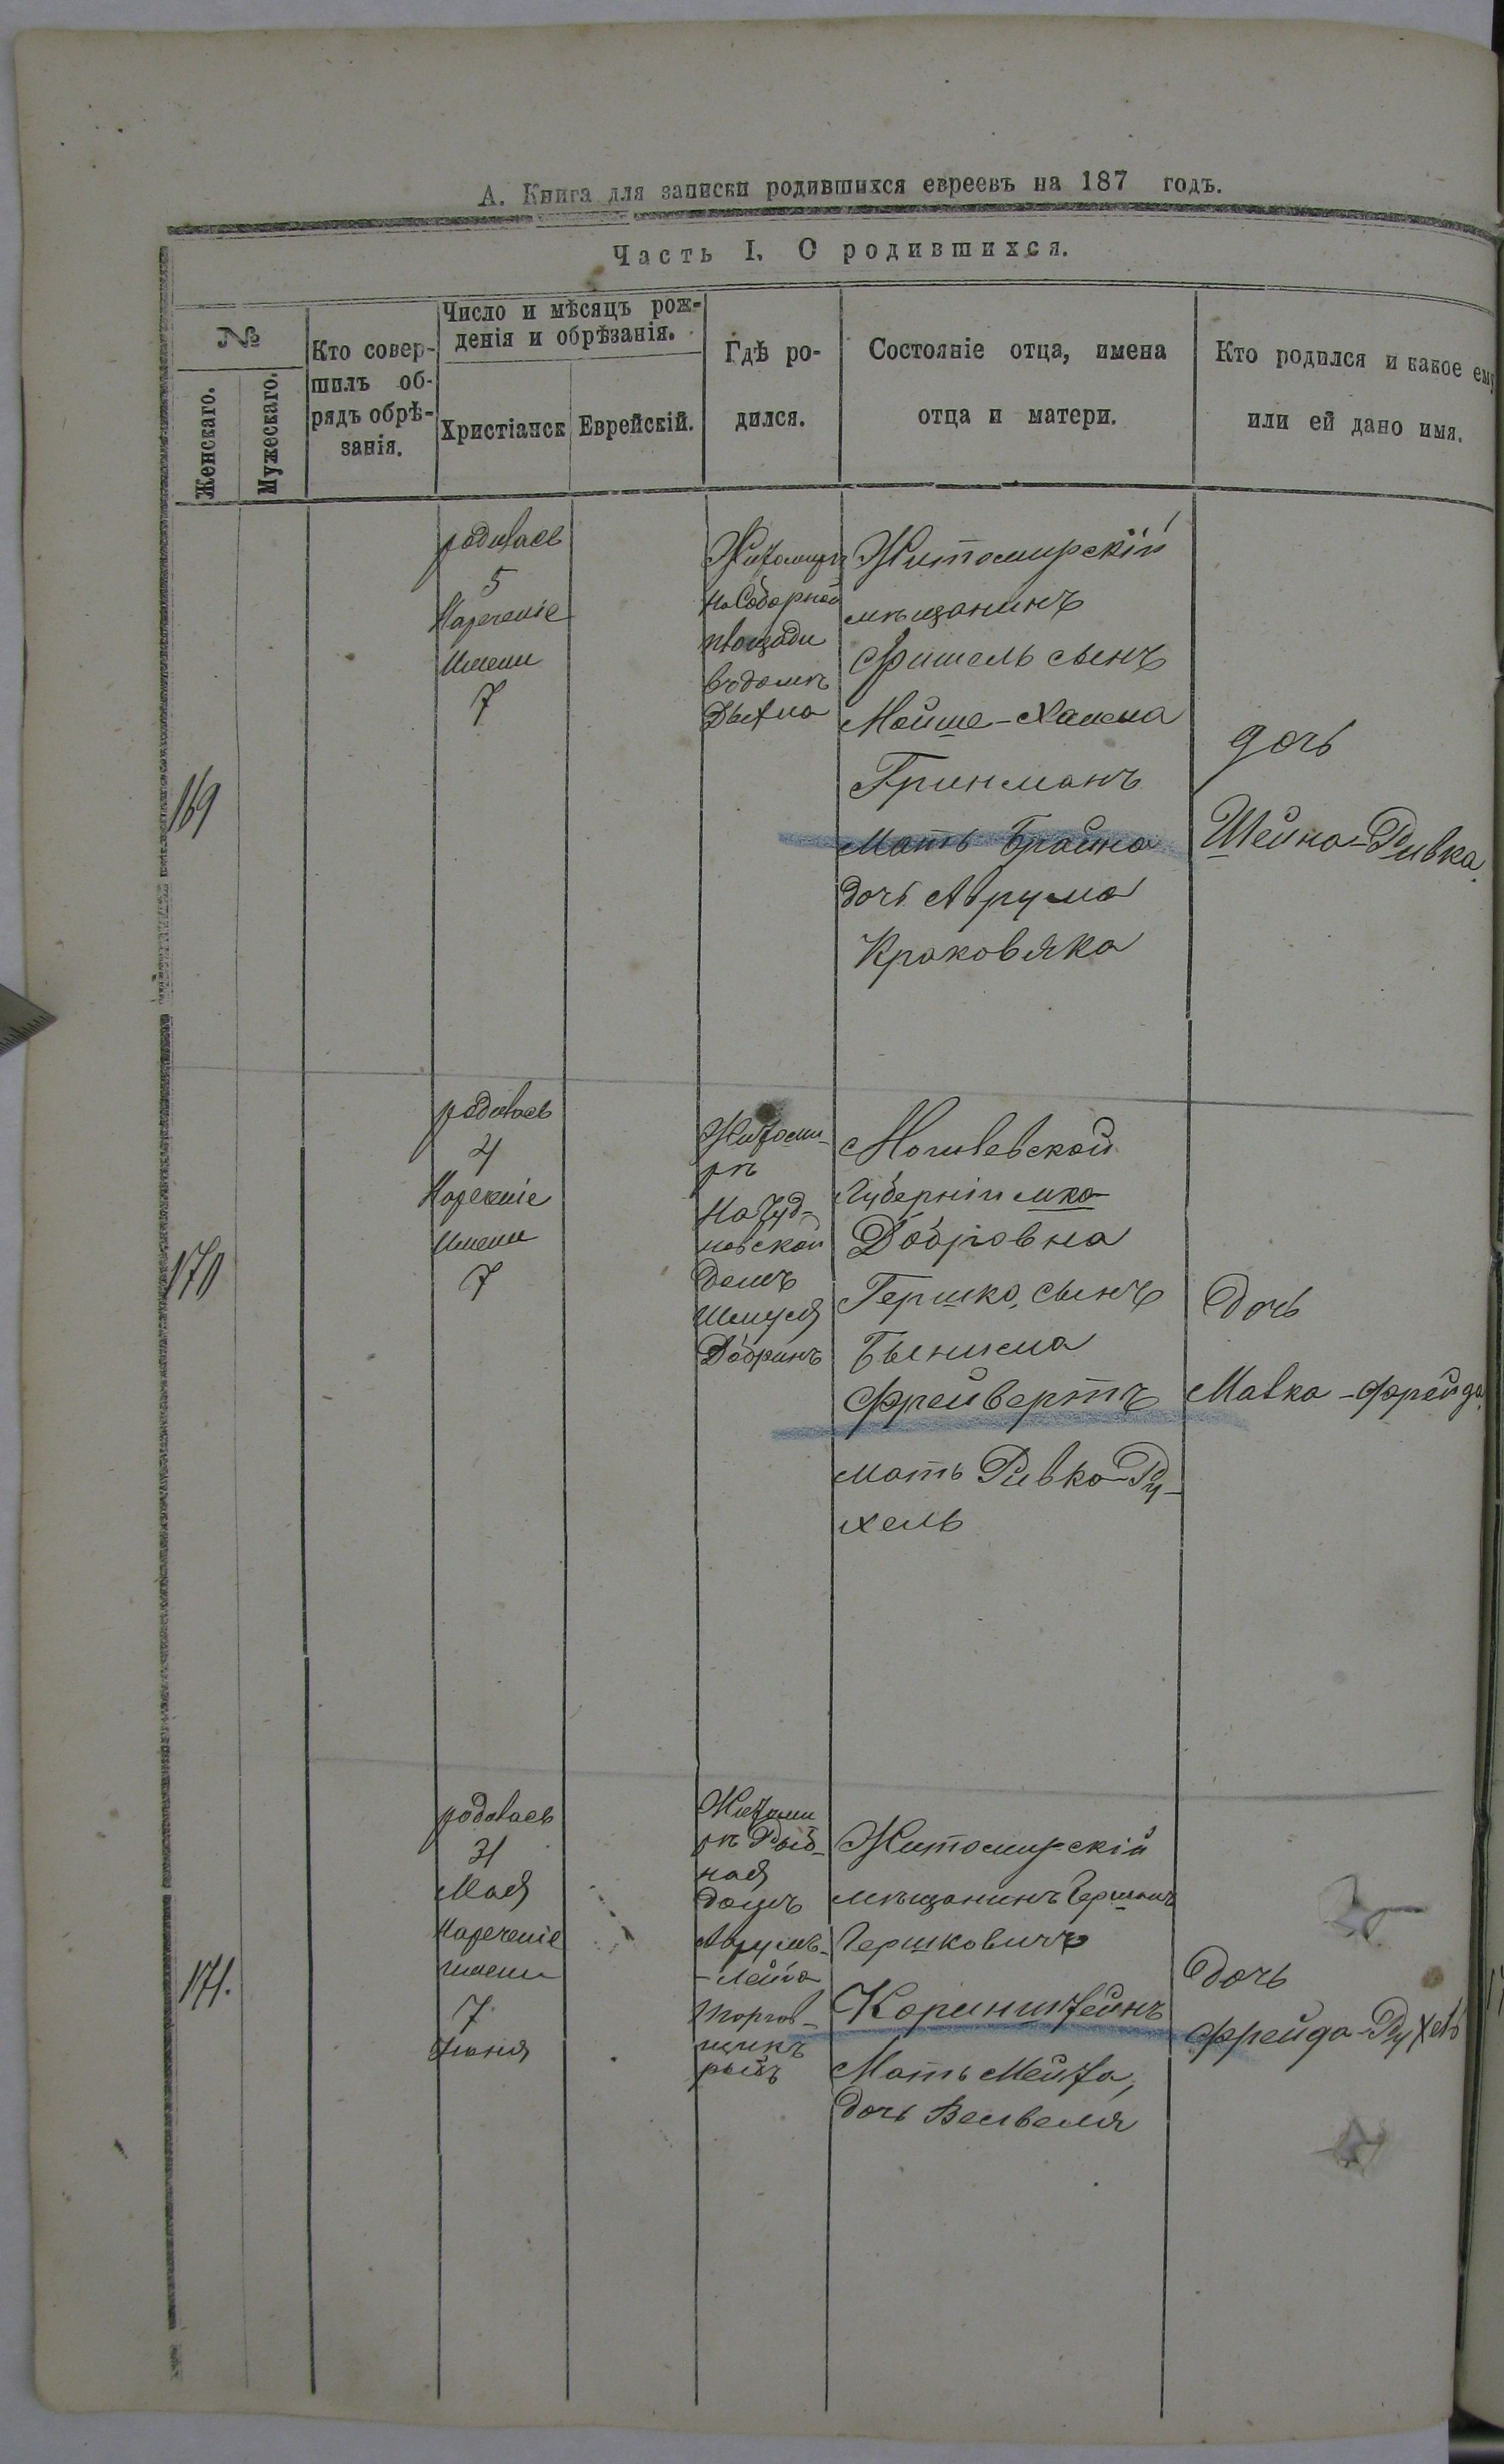 А. Книга для записки родившихся евреевъ на 187 годъ.
Часть I. О родившихся.
№
Женскаго.
Мужескаго.
Кто совер-
шилъ об-
рядъ обрѣ-
занія.
Число и мѣсяцъ рож-
денія и обрѣзанія.
Христіанск
Еврейскій.
Гдѣ ро-
дился.
Состояніе отца, имена
отца и матери.
Кто родился и какое ему
или ей дано имя.
169
родилась
5
Нареченіе
Имени
7
Житомирѣ
на Соборной
площади
въ домѣ
Житомирскій
мѣщанинъ
Фишель сынъ
Мойше-Хаима
Гринманъ
Мать Брайна
дочь Аврума
Краковяка
дочь
Шейна-Ривка.
170
родилась
4
Нареченіе
Имени
7
Житоми-
рѣ
На Чуд-
новской
домъ
Шмуля
Добринъ
Могилевской
Губерніи мка
Добровна
Гершко, сынъ
Фрейвертъ
мать Ривка-Ру-
хель
дочь
Малка-Фрейда.
171.
родилась
31
Мая
Нареченіе
имени
7
Іюня
Житоми
рѣ Рыб-
ная
домъ
Аврумъ-
-Лейба
торгов-
щикъ
рыбъ
Житомирскій
мѣщанинъ Гершонъ
Гершковичъ
Коринштейнъ
Мать Мейта,
дочь Велвеля
дочь
Фрейда-Рухель